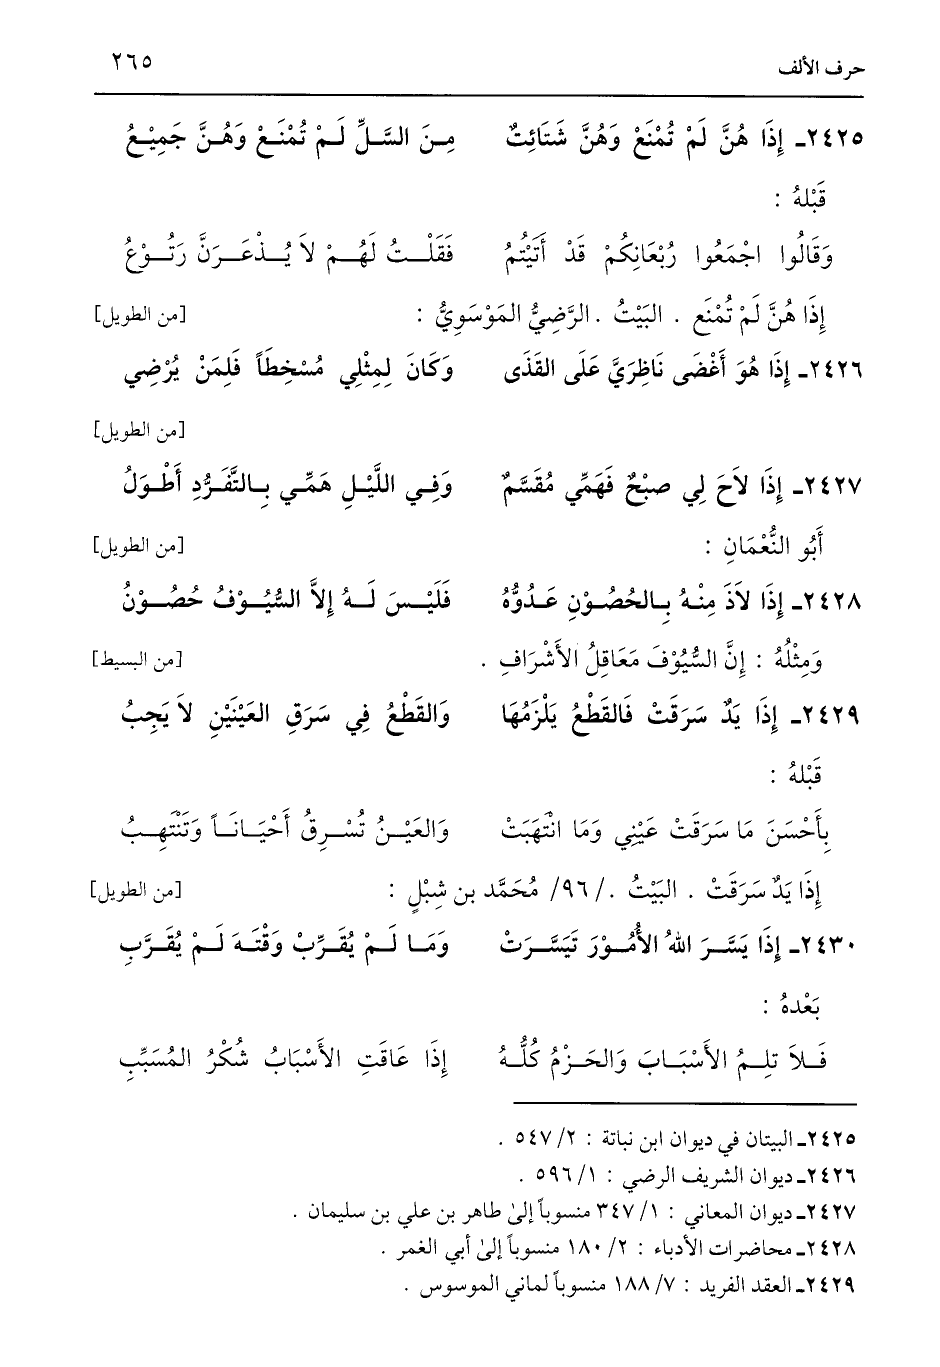 حرف الألف ٢٦٥
٢٤٢٥ـ إِذَا هُنَّ لَمْ تُمْنَعْ وَهُنَّ شَتَائِتٌ مِنَ السَّلِّ لَمْ تُمْنَعْ وَهُنَّ جَمِيْعُ
قَبْلهُ :
وَقَالُوا اجْمَعُوا رُبْعَانِكُمْ قَدْ أَتَيْتُمُ فَقَلْتُ لَهُمْ لاَ يُذْعَرَنَّ رَتُوْعُ
إِذَا هُنَّ لَمْ تُمْنَع . البَيْتُ . الرَّضِيُّ المَوْسَوِيُّ : [من الطويل]
٢٤٢٦ـ إِذَا هُوَ أَغْضَى نَاظِرَيَّ عَلَى القَذَى وَكَانَ لِمِثْلِي مُسْخِطَاً فَلِمَنْ يُرْضِي
[من الطويل]
٢٤٢٧ـ إِذَا لاَحَ لِي صبْحٌ فَهَمِّي مُقَسَّمٌ وَفِي اللَّيْلِ هَمِّي بِالتَّفَرُّدِ أَطْوَلُ
أَبُو النُّعْمَانِ : [من الطويل]
٢٤٢٨ـ إِذَا لاَذَ مِنْهُ بِالحُصُوْنِ عَدُوُّهُ فَلَيْسَ لَهُ إِلاَّ السُّيُوْفُ حُصُوْنُ
وَمِثْلُهُ : إِنَّ السُّيُوْفَ مَعَاقِلُ الأَشْرَافِ . [من البسيط]
٢٤٢٩ـ إِذَا يَدٌ سَرَقَتْ فَالقَطْعُ يَلْزَمُهَا وَالقَطْعُ فِي سَرَقِ العَيْنَيْنِ لاَ يَجِبُ
قَبْلهُ :
بِأَحْسَنَ مَا سَرَقَتْ عَيْنِي وَمَا انْتَهَبَتْ وَالعَيْنُ تُسْرِقُ أَحْيَانَاً وَتَنْتَهِبُ
إِذَا يَدٌ سَرَقَتْ . البَيْتُ . /٩٦/ مُحَمَّد بن شِبْلٍ : [من الطويل]
٢٤٣٠ـ إِذَا يَسَّرَ اللهُ الأُمُوْرَ تَيَسَّرَتْ وَمَا لَمْ يُقَرِّبْ وَقْتَهَ لَمْ يُقَرَّبِ
بَعْدهُ :
فَلاَ تلِمُ الأَسْبَابَ وَالحَزْمُ كُلُّهُ إِذَا عَاقَتِ الأَسْبَابُ شُكْرُ المُسَبِّبِ
٢٤٢٥ـ البيتان في ديوان ابن نباتة : ٢/ ٥٤٧ .
٢٤٢٦ـ ديوان الشريف الرضي : ١/ ٥٩٦ .
٢٤٢٧ـ ديوان المعاني : ١/ ٣٤٧ منسوباً إلىٰ طاهر بن علي بن سليمان .
٢٤٢٨ـ محاضرات الأدباء : ٢/ ١٨٠ منسوباً إلىٰ أبي الغمر .
٢٤٢٩ـ العقد الفريد : ٧/ ١٨٨ منسوباً لماني الموسوس .